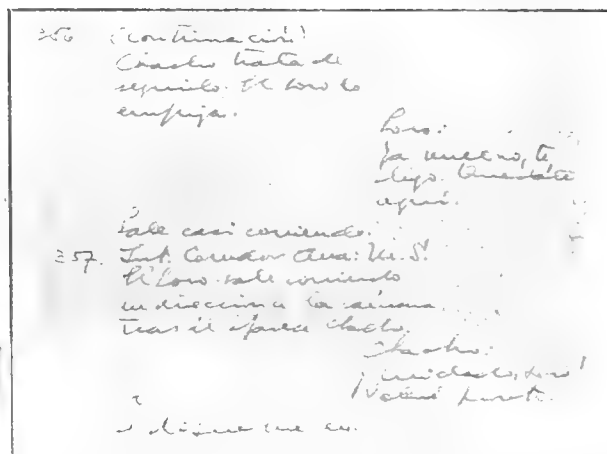 356 (continuación)
Chacho trata de
seguirlo. El Loro lo
empuja.
Loro:
Ya vuelvo, te
digo. Quedate
aquí.
Sale casi corriendo.
357. Int. Corredor Ana: M. S.
El Loro sale corriendo
en dirección a la cámara.
Tras él Chacho.
Chacho:
¡cuidado, Loro!
¡Volvé pronto.